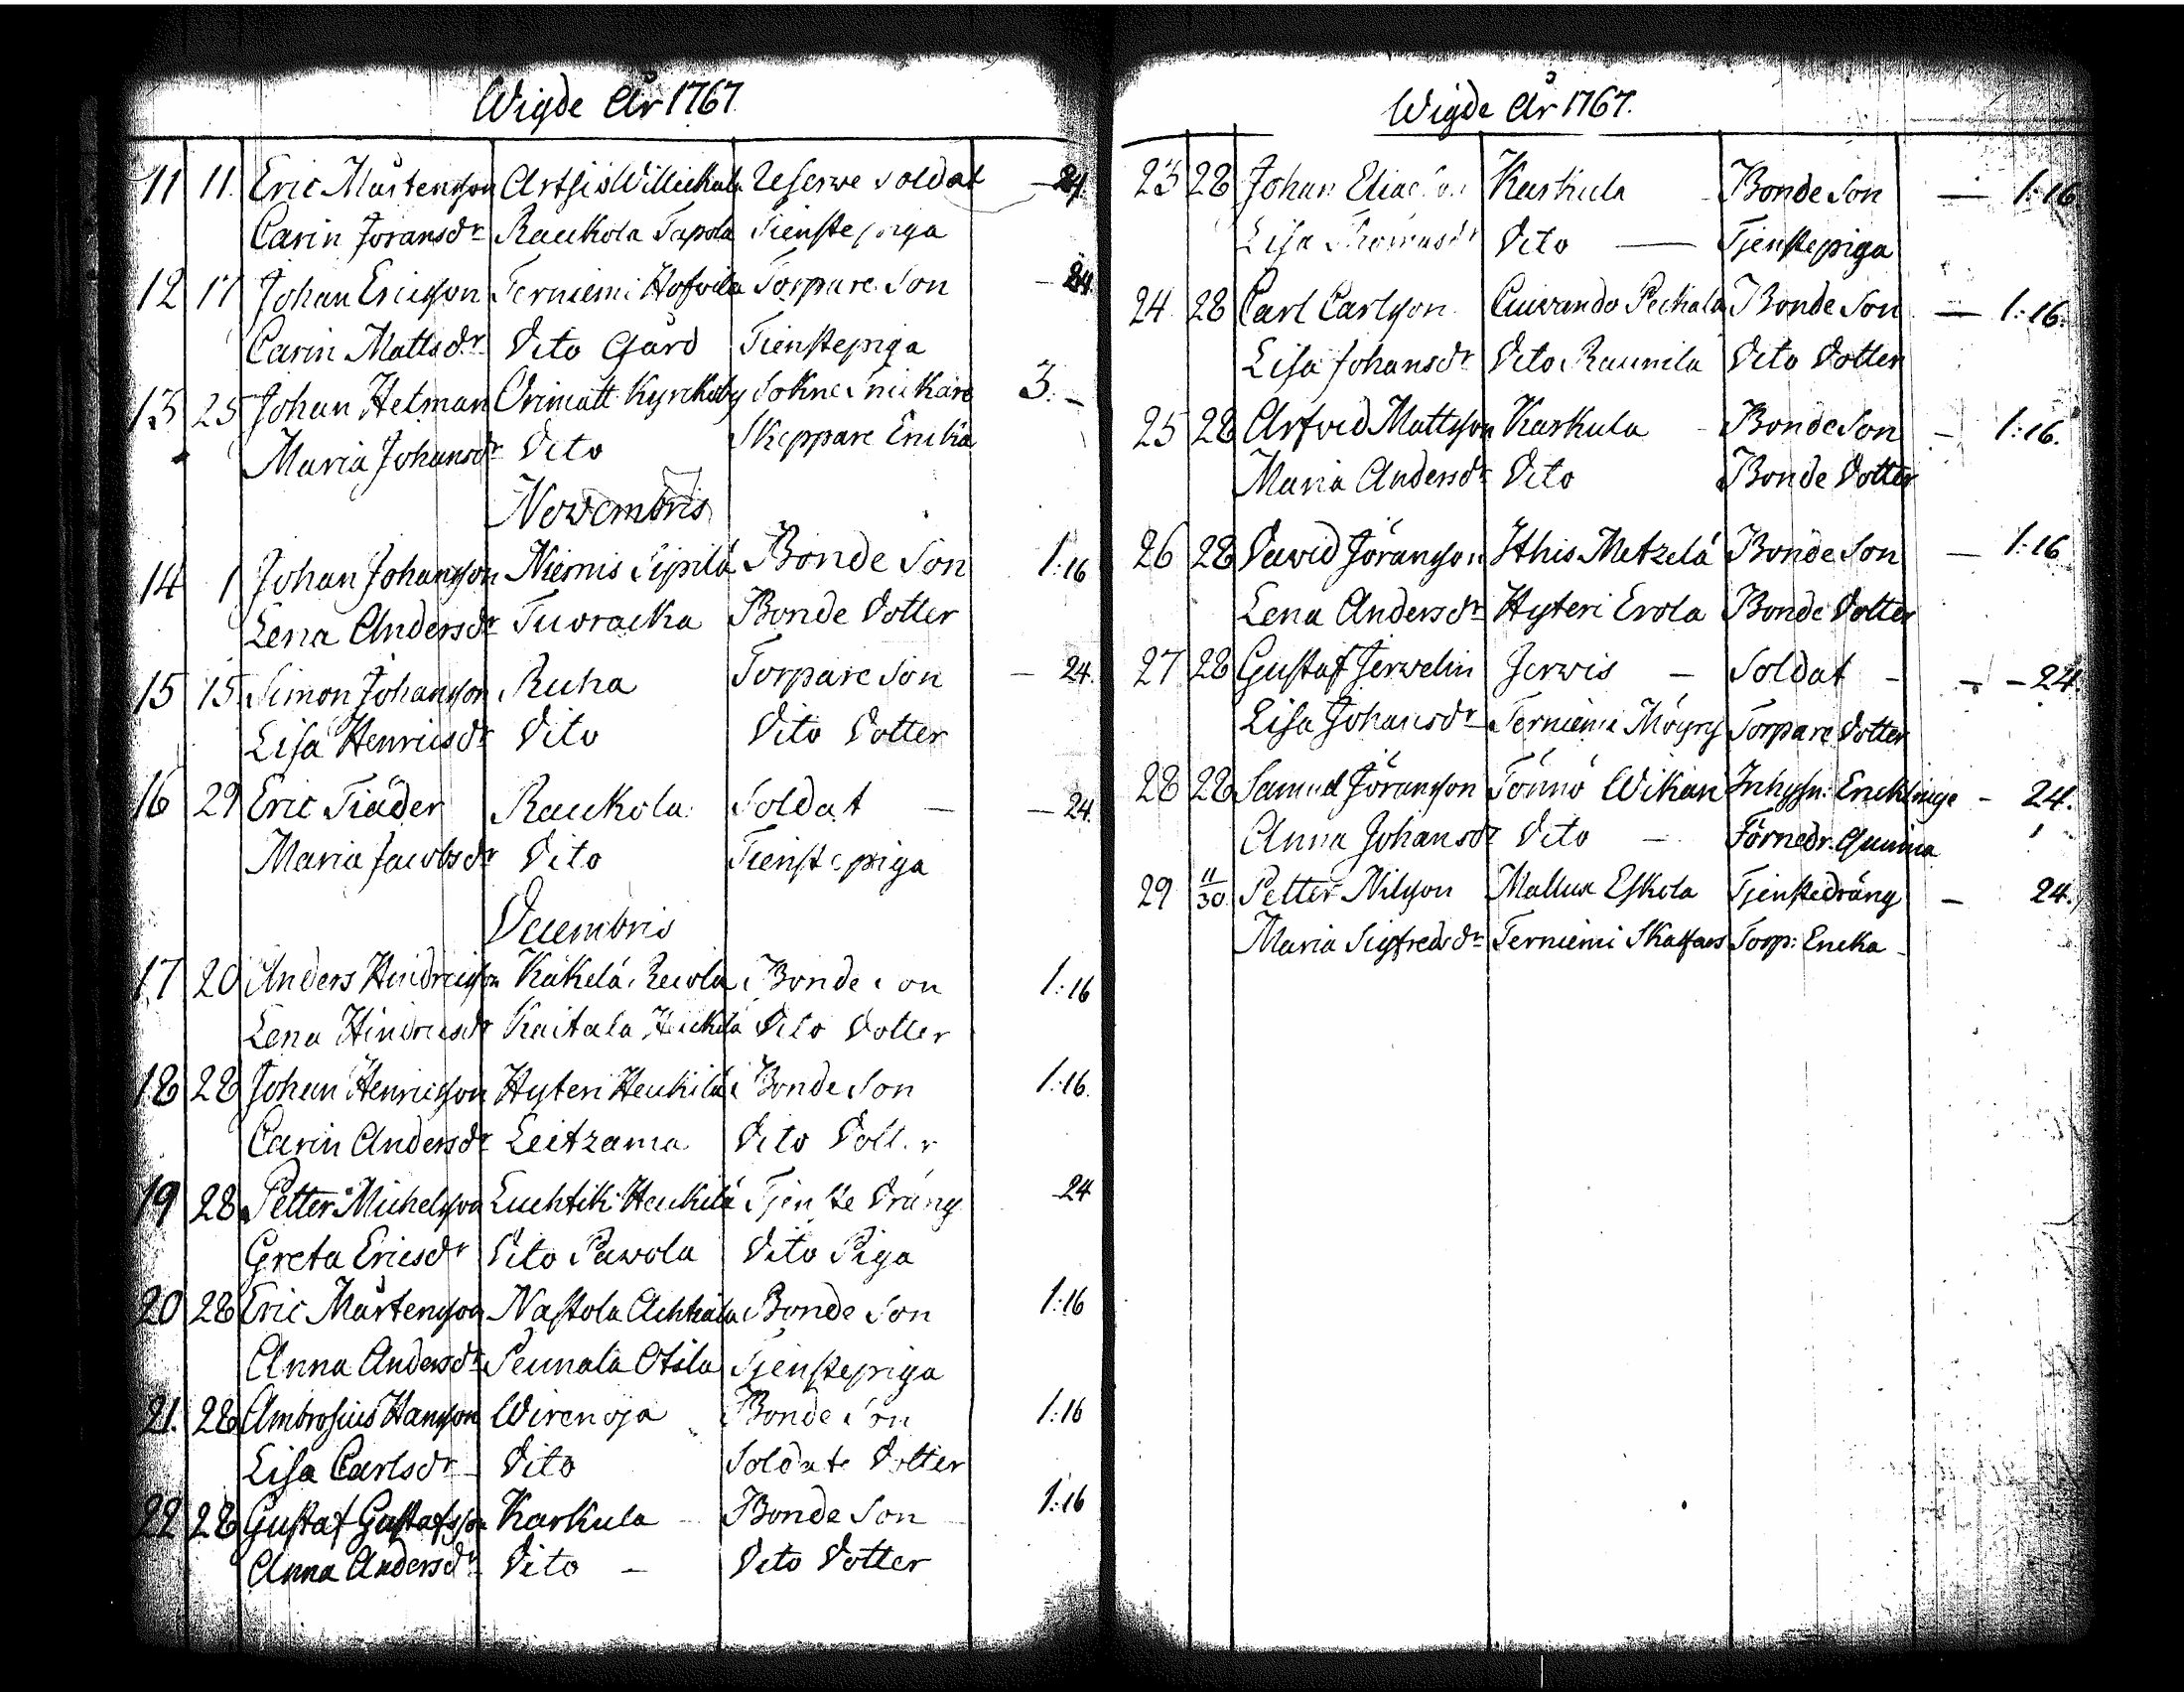 Wigde År 1767
11 11. Eric Mårtensson Artsis Willickala Reserwe Soldat — 24.
Carin Joransdr Raukola Tapola Tienstepiga
12 11 Johan Ericsson Terniemi Hofvila Torpare Son — 24.
Carin Mattsdr Dito Gård Tienstepiga
13 25 Johan Helman Orimatt. Kyrckoby Sokne Snickare 3. —
Maria Johansdr Dito Skeppare Encka
Novembris
14 1 Johan Johansson Niemis Sipilä Bonde Son 1:16
Lena Andersdr Tuoracka Bonde Dotter
15 15 Simon Johansson Ruha Torpare Son — 24.
Lisa Henricsdr Dito Dito Dotter
16 29 Eric Tiäder Raukola Soldat — — 24.
Maria Jacobsdr Dito Tienstepiga
Decembris
17 20 Anders Hindricsson Käkelä Reiola Bonde Son 1:16
Lena Hindricsdr Kaitala Heickilä Dito Dotter
18 28 Johan Henricsson Hyteri Heickilä Bonde Son 1:16.
Carin Andersdr Leitzama Dito Dotter
19 28 Petter Michelsson Luchtik: Heickilä Tjenste Dräng 24
Greta Ericsdr Dito Pawola Dito Piga
20 28 Eric Mårtensson Nastola Achkala Bonde Son 1:16
Anna Andersdr Pennala Otila Tjenstepiga
21. 28 Ambrosius Hansson Wirenoja Bonde Son 1:16
Lisa Carlsdr Dito Soldate Dotter
22 28 Gustaf Gustafsson Karkula Bonde Son 1:16
Anna Andersdr Dito — Dito Dotter
Wigde År 1767.
23 28 Johan Eliasson Karkula Bonde Son — 1:16.
Lisa Thomasdr Dito — Tjenstepiga
24 28 Carl Carlsson Cuivando Peckala Bonde Son — 1:16.
Lisa Johansdr Dito Raunila Dito Dotter
25 28 Arfved Mattsson Karkula Bonde Son — 1:16.
Maria Andersdr Dito Bonde Dotter
26 28 David Jöransson Ithis Metzelä Bonde Son — 1:16
Lena Andersdr Hyteri Erola Bonde Dotter
27 28 Gustaf Jerwelin Jerwis — Soldat — — 24.
Lisa Johansdr Terniemi Möyry Torpare Dotter
28 28 Samuel Jöransson Tönnö Wikari Inhyse: Encklinge — 24.
Anna Johansdr Dito — Förnedr. Quinna
29 11/30 Petter Nilsson Mallus Eskola Tjenstedräng — 24.
Maria Sigfredsdr Terniemi Torp: Encka